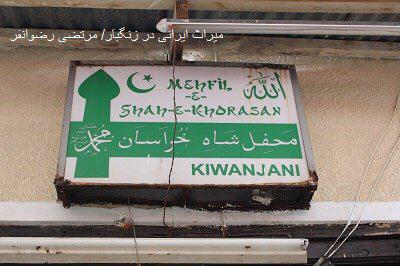 میراث ایرانی در زنگبار/ مرتضی رضوانفر
MEHFIL
-E-
SHAH-E-KHORASAN
الله
محمد
محفل شاه خراسان
KIWANJANI